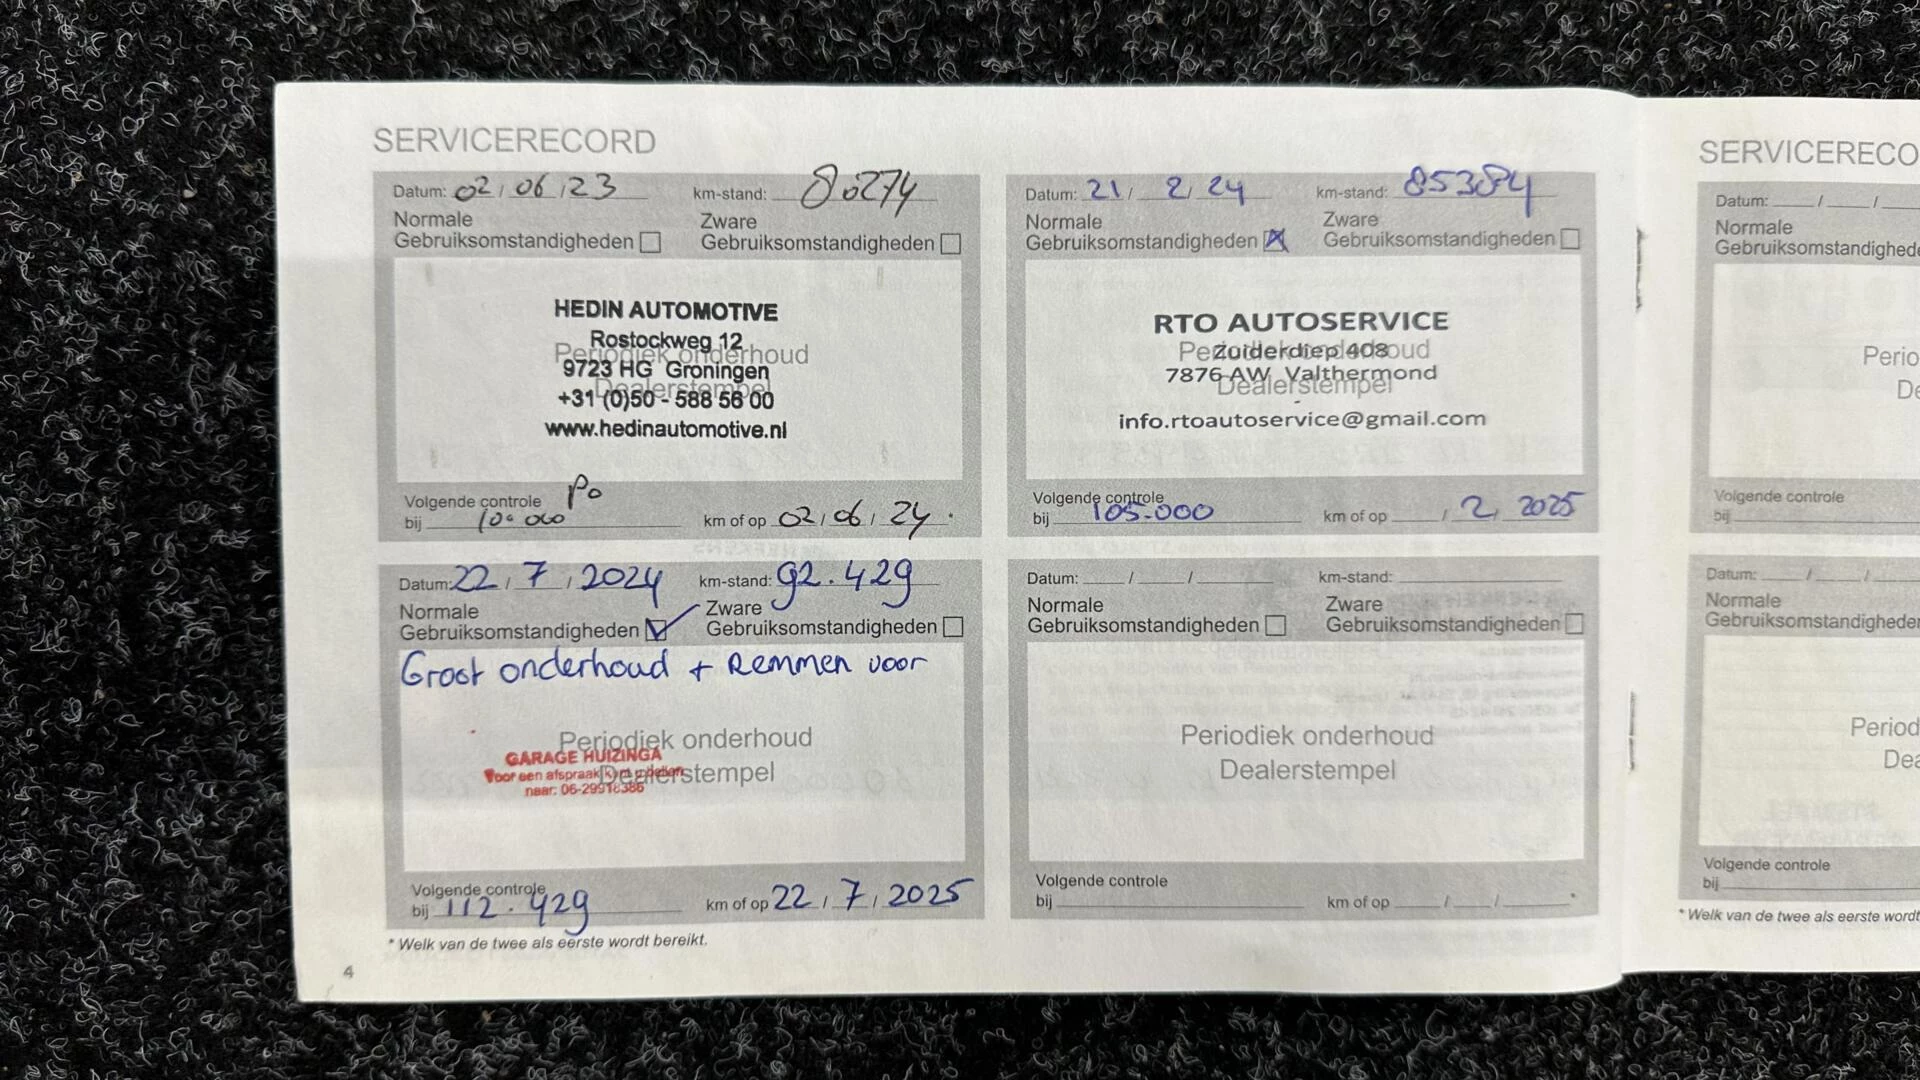 SERVICERECORD
Datum: 02/06/23 km-stand: 80274
Normale Zware
Gebruiksomstandigheden Gebruiksomstandigheden
HEDIN AUTOMOTIVE
Rostockweg 12
Periodiek onderhoud
9723 HG Groningen
Dealerstempel
+31 (0)50 - 588 56 00
www.hedinautomotive.nl
Volgende controle
bij 100.000 km of op 02/06/24
Datum: 21/2/24 km-stand: 85384
Normale Zware
Gebruiksomstandigheden Gebruiksomstandigheden
RTO AUTOSERVICE
Periodiek onderhoud
Zuiderdiep 408
7876 AW Valthermond
Dealerstempel
info.rtoautoservice@gmail.com
Volgende controle
bij 105.000 km of op /2/2025
Datum: 22/7/2024 km-stand: 92.429
Normale Zware
Gebruiksomstandigheden Gebruiksomstandigheden
Groot onderhoud + Remmen voor
Periodiek onderhoud
GARAGE HUIZINGA
Dealerstempel
Voor een afspraak
naar: 06-29918386
Volgende controle
bij 112.429 km of op 22/7/2025
Datum: / / km-stand:
Normale Zware
Gebruiksomstandigheden Gebruiksomstandigheden
Periodiek onderhoud
Dealerstempel
Volgende controle
bij km of op / / *
* Welk van de twee als eerste wordt bereikt.
4
SERVICERECO
Datum: / /
Normale
Gebruiksomstandighede
Perio
De
Volgende controle
bij
Datum: / /
Normale
Gebruiksomstandigheder
Period
Dea
Volgende controle
bij
* Welk van de twee als eerste wordt